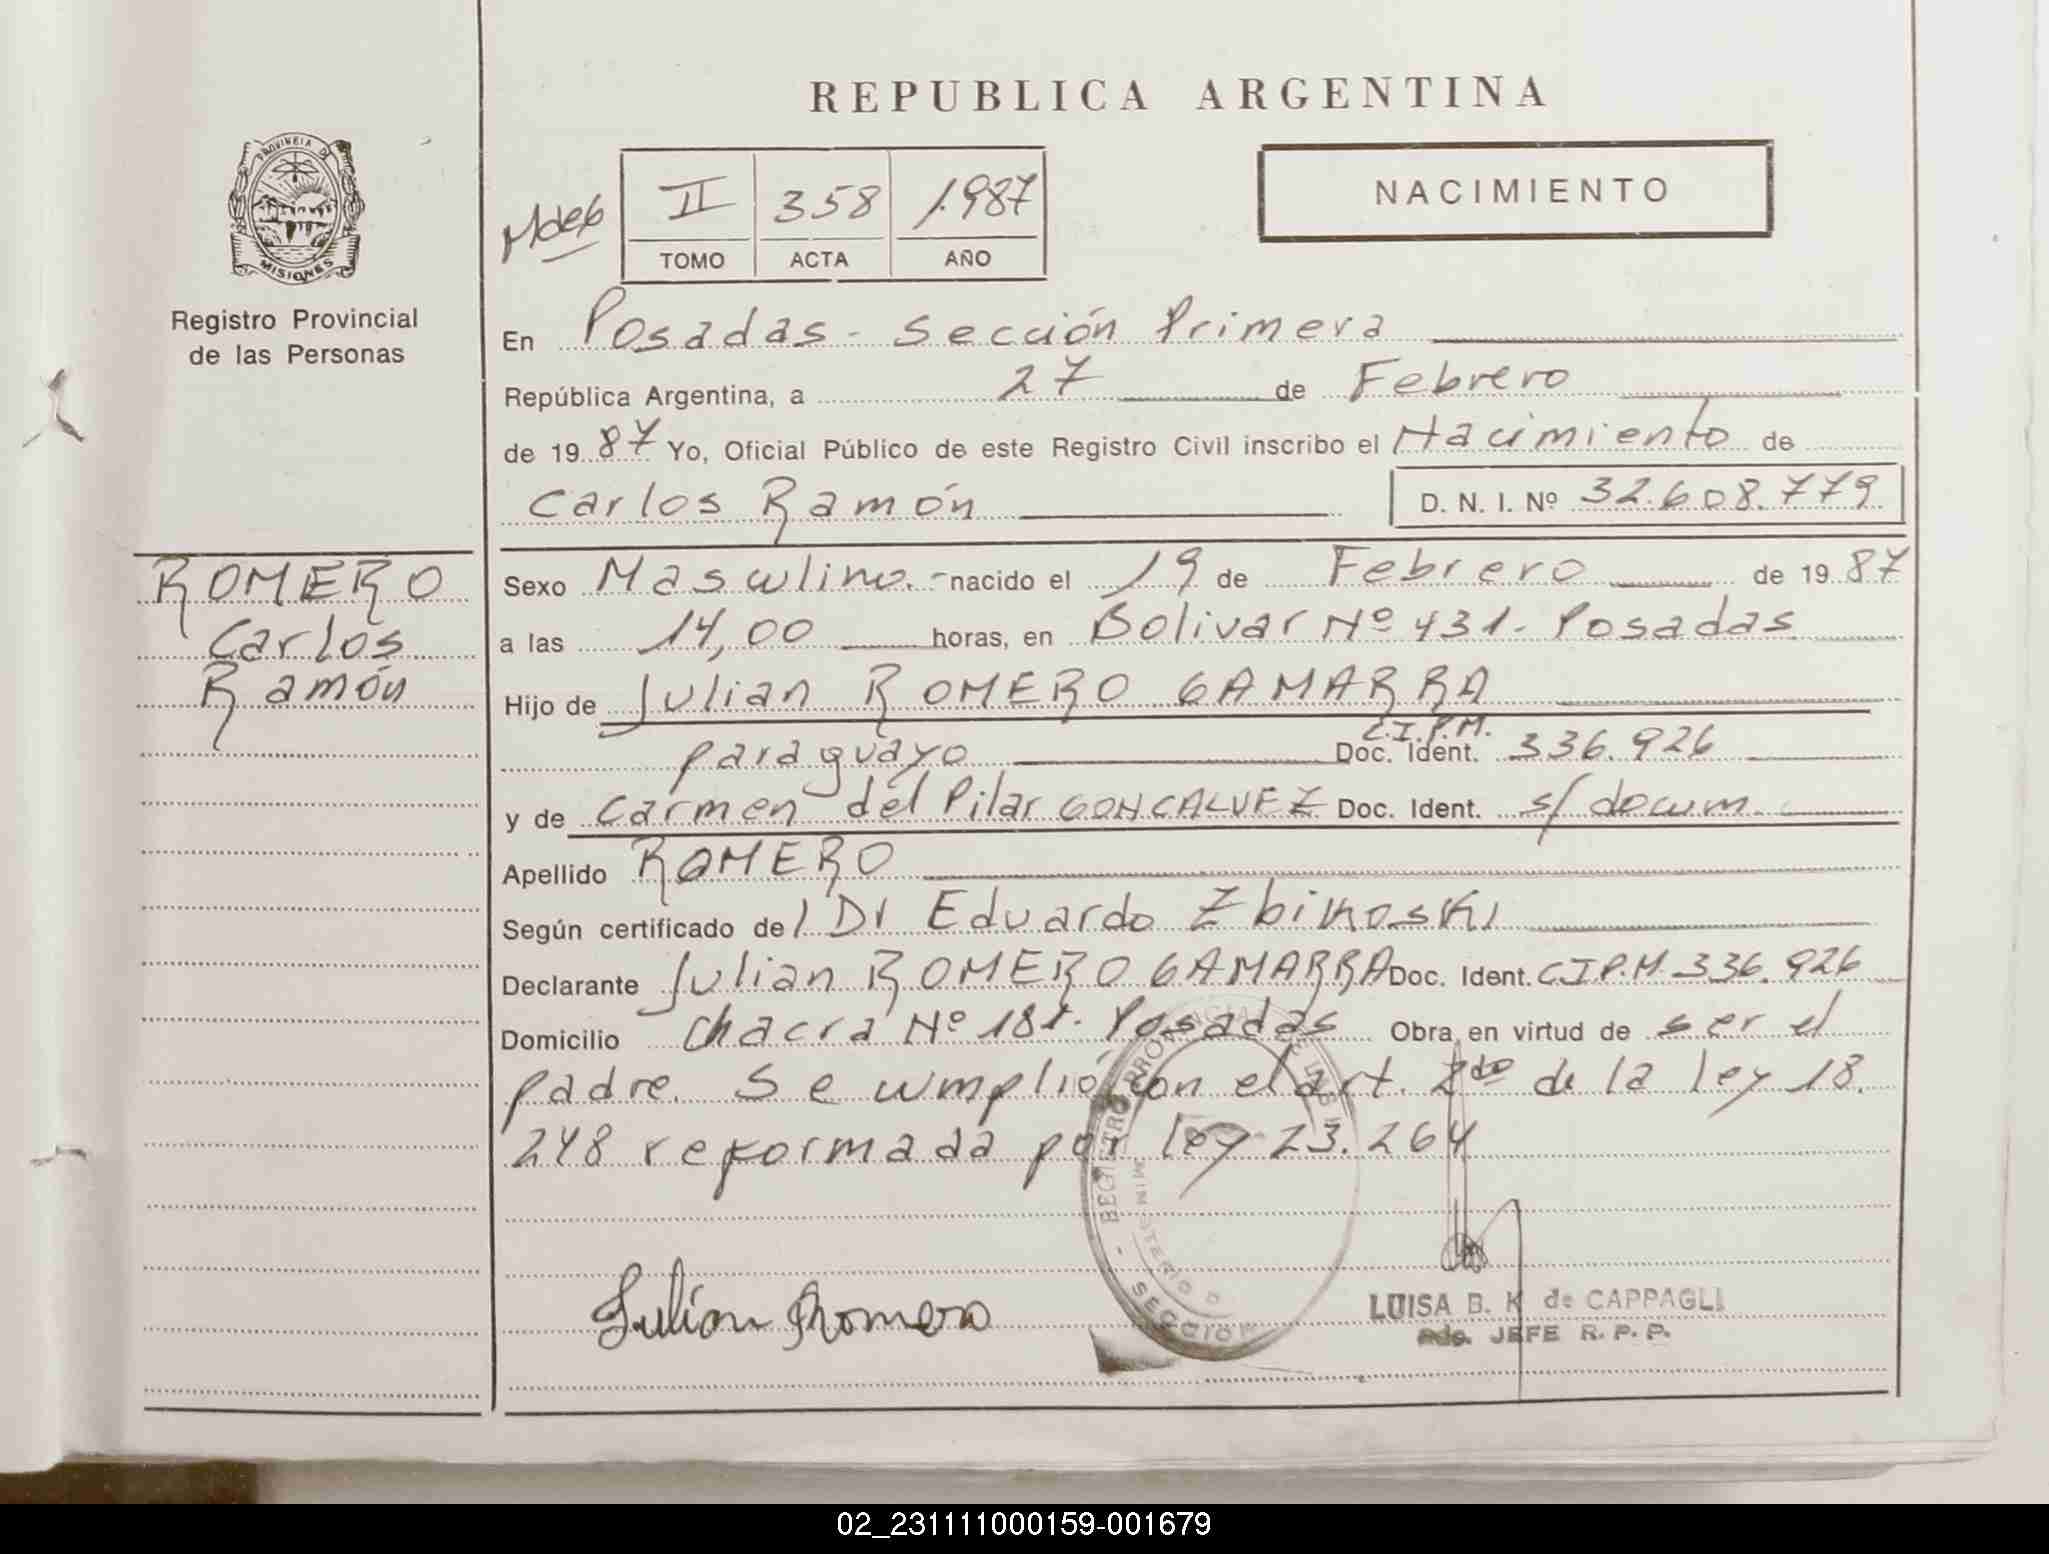 REPUBLICA ARGENTINA
PROVINCIA DE
MISIONES
Registro Provincial
de las Personas
NACIMIENTO
II 358 1.987
TOMO ACTA AÑO
En Posadas - Sección Primera
República Argentina, a 27 de Febrero
de 19 87 Yo, Oficial Público de este Registro Civil inscribo el Nacimiento de
Carlos Ramón D. N. I. Nº 32.608.779
ROMERO
Carlos
Ramón
Sexo Masculino.- nacido el 19 de Febrero de 19 87
a las 14,00 horas, en Bolivar Nº 431- Posadas
Hijo de Julian ROMERO GAMARRA
paraguayo C.I.P.M. Doc. Ident. 336.926
y de Carmen del Pilar GONCALVEZ Doc. Ident. s/ docum.
Apellido ROMERO
Según certificado del Dr Eduardo Zbikoski
Declarante Julian ROMERO GAMARRA Doc. Ident. C.I.P.M. 336.926
Domicilio Chacra Nº 181. Posadas Obra en virtud de ser el
padre. Se cumplió con el art. 2do de la ley 18.
248 reformada por ley 23.264
Julian Romero
SECCION
LUISA B. K de CAPPAGLI
JEFE R. P. P.
02_231111000159-001679